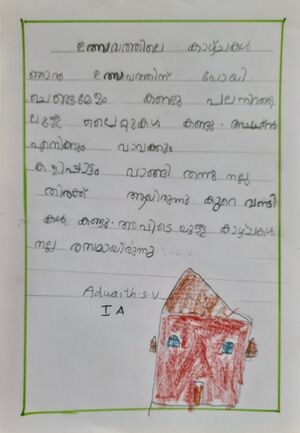 ഉത്സവത്തിലെ കാഴ്ചകൾ
ഞാൻ ഉത്സവത്തിന് പോയി.
ചെണ്ടമേളം കണ്ടു പലനിറത്തി
ലുള്ള ലൈറ്റുകൾ കണ്ടു. അച്ഛൻ
എനിക്കും വാവക്കും
കളിപ്പാട്ടം വാങ്ങി തന്നു നല്ല
തിരക്ക് ആയിരുന്നു കുറെ വണ്ടി
കൾ കണ്ടു. അവിടെ ഉള്ള കാഴ്ചകൾ
നല്ല രസമായിരുന്നു
Adwaith s v
I A